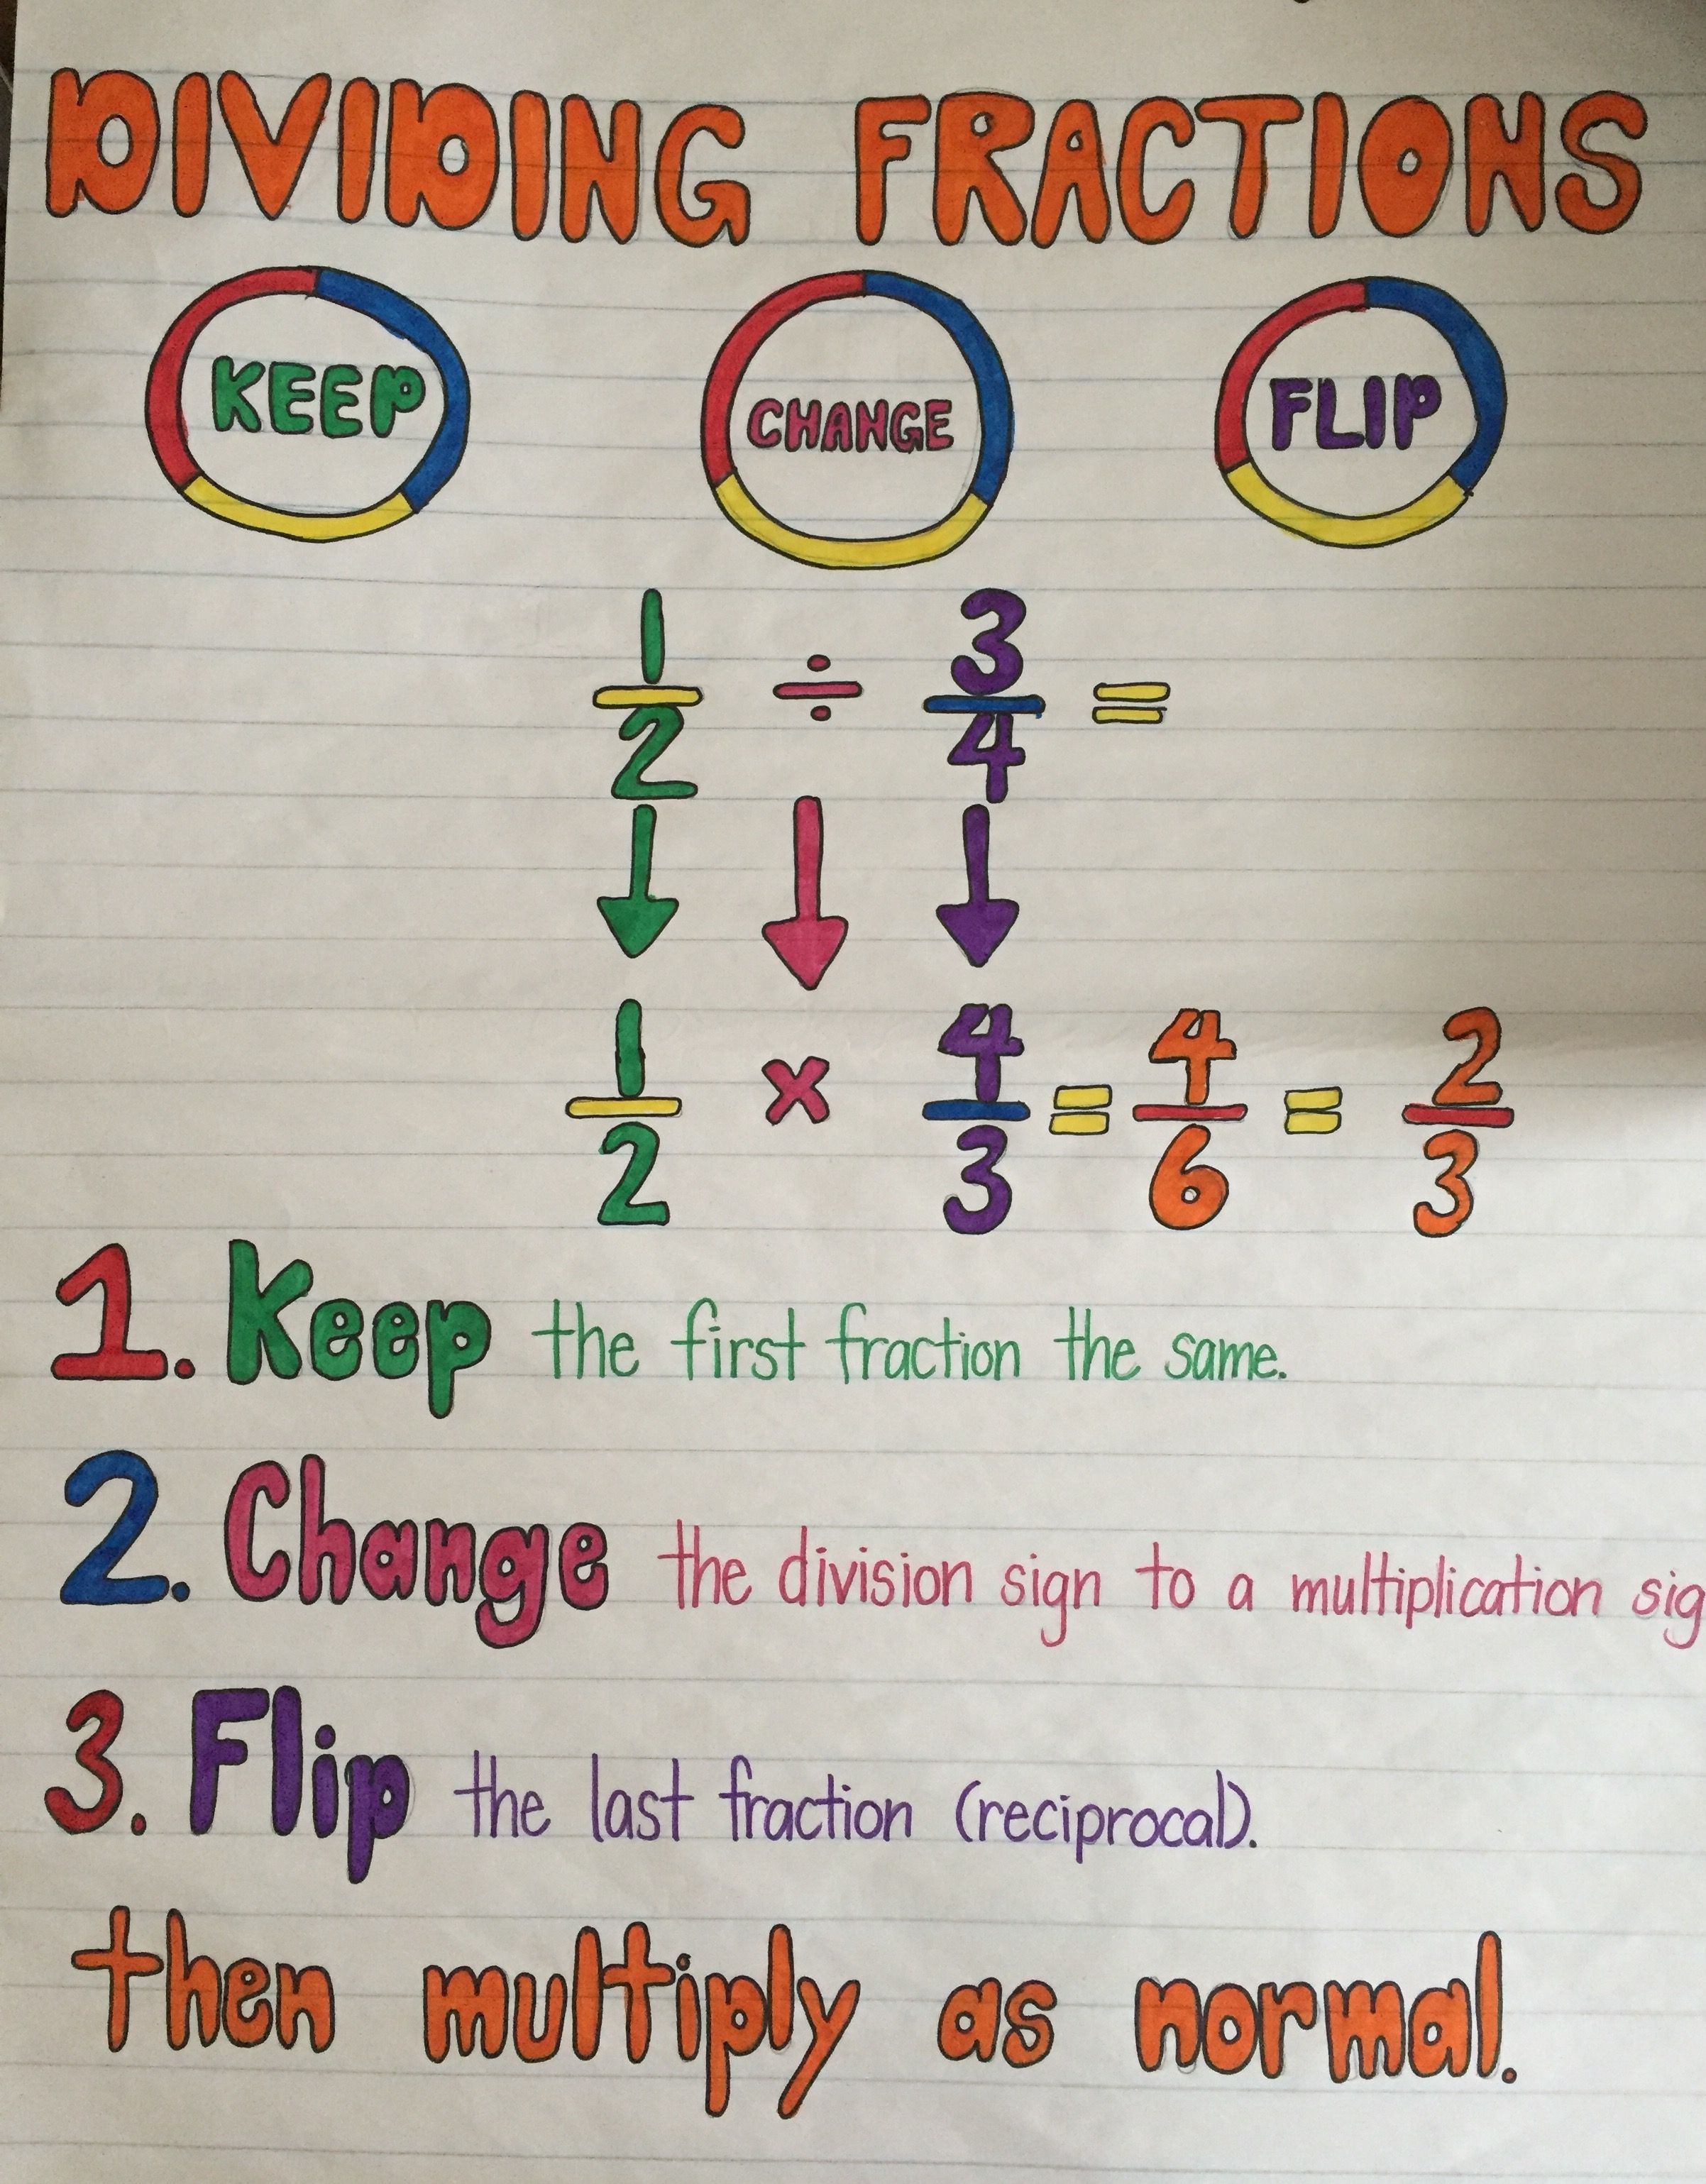 DIVIDING FRACTIONS
KEEP CHANGE FLIP
1/2 ÷ 3/4 =
1/2 × 4/3 = 4/6 = 2/3
1. Keep the first fraction the same.
2. Change the division sign to a multiplication sig
3. Flip the last fraction (reciprocal).
then multiply as normal.